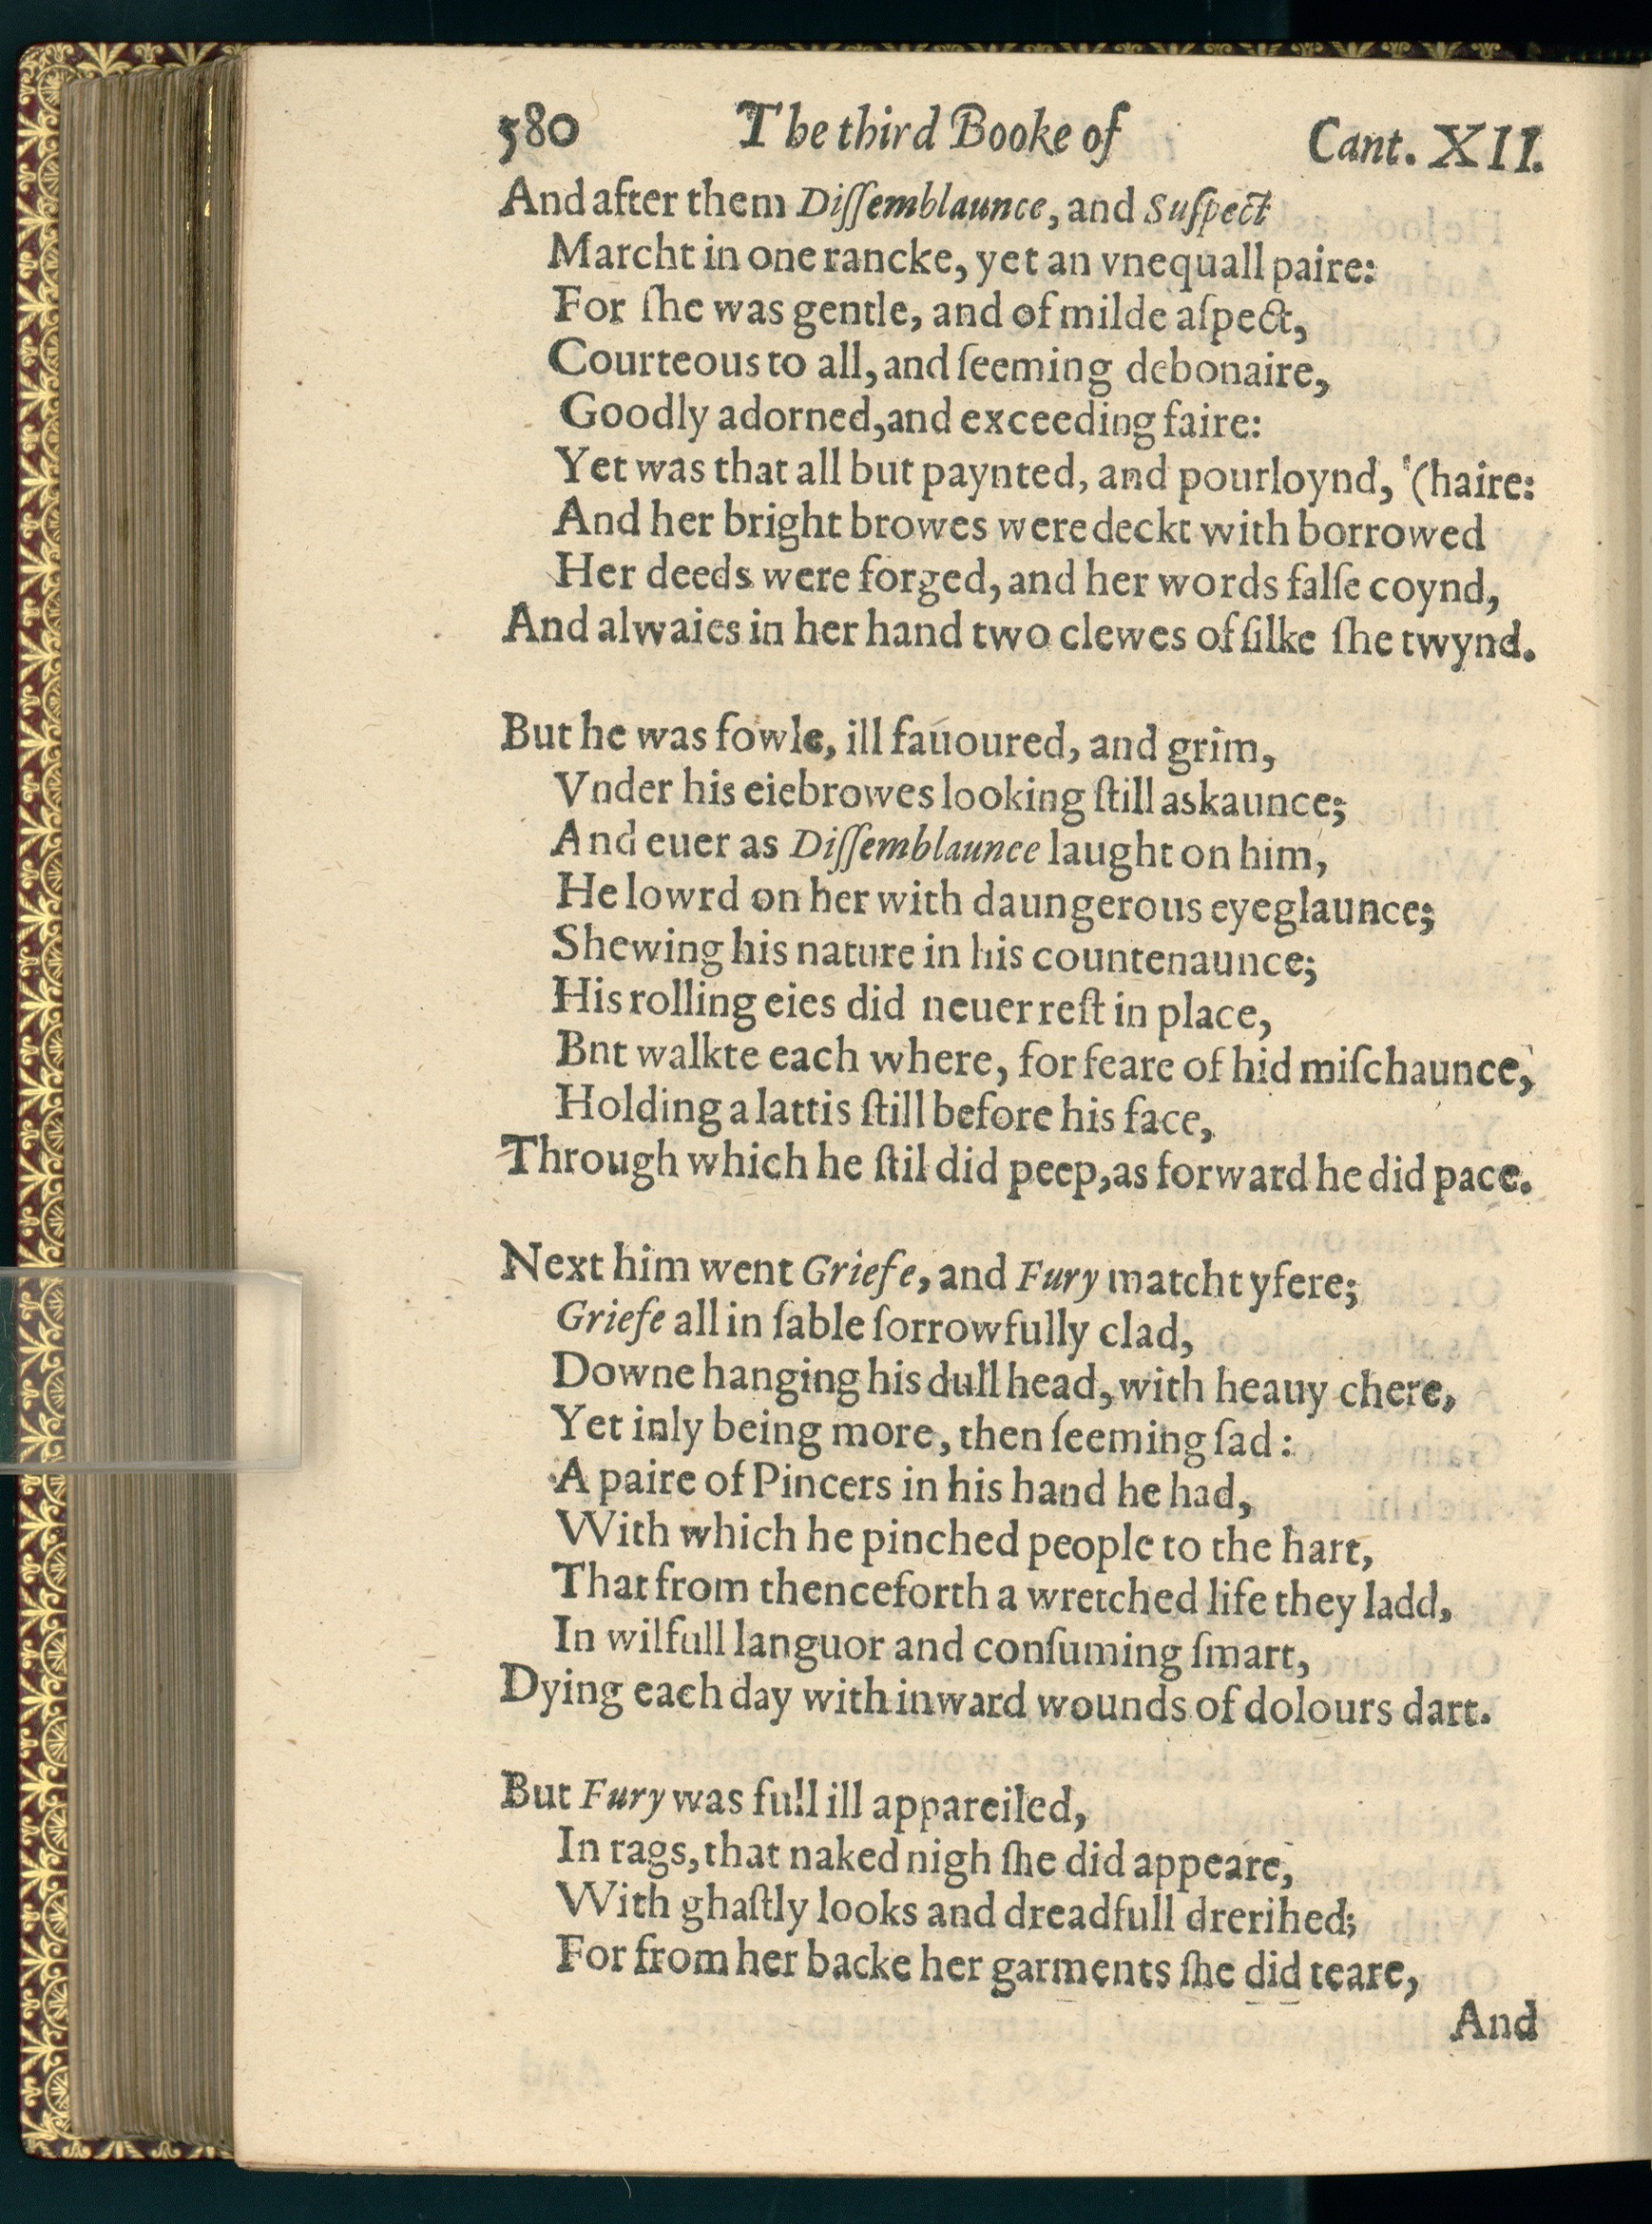 580 The third Booke of Cant. XII.
And after them Diſſemblaunce, and Suſpect
Marcht in one rancke, yet an vnequall paire:
For ſhe was gentle, and of milde aſpect,
Courteous to all, and ſeeming debonaire,
Goodly adorned, and exceeding faire:
Yet was that all but paynted, and pourloynd, (haire:
And her bright browes were deckt with borrowed
Her deeds were forged, and her words falſe coynd,
And alwaies in her hand two clewes of ſilke ſhe twynd.
But he was fowle, ill fauoured, and grim,
Vnder his eiebrowes looking ſtill askaunce;
And euer as Diſſemblaunce laught on him,
He lowrd on her with daungerous eyeglaunce;
Shewing his nature in his countenaunce;
His rolling eies did neuer reſt in place,
Bnt walkte each where, for feare of hid miſchaunce,
Holding a lattis ſtill before his face,
Through which he ſtil did peep, as forward he did pace.
Next him went Griefe, and Fury matcht yfere;
Griefe all in ſable ſorrowfully clad,
Downe hanging his dull head, with heauy chere,
Yet inly being more, then ſeeming ſad:
A paire of Pincers in his hand he had,
With which he pinched people to the hart,
That from thenceforth a wretched life they ladd,
In wilfull languor and conſuming ſmart,
Dying each day with inward wounds of dolours dart.
But Fury was full ill appareiled,
In rags, that naked nigh ſhe did appeare,
With ghaſtly looks and dreadfull drerihed;
For from her backe her garments ſhe did teare,
And